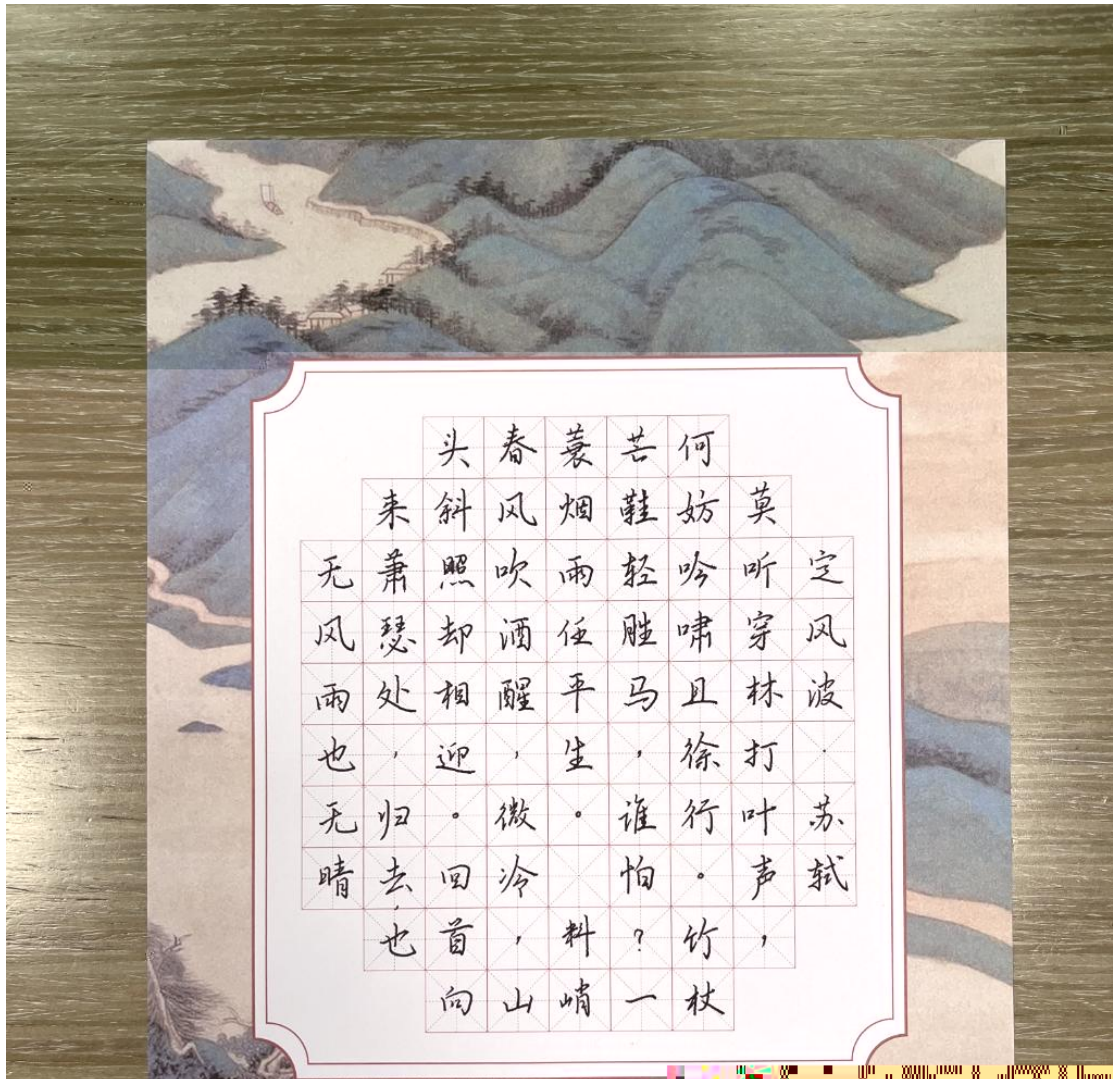 定风波·苏轼
莫听穿林打叶声，
何妨吟啸且徐行。竹杖
芒鞋轻胜马，谁怕？一
蓑烟雨任平生。料峭
春风吹酒醒，微冷，山
头斜照却相迎。回首向
来萧瑟处，归去，也
无风雨也无晴